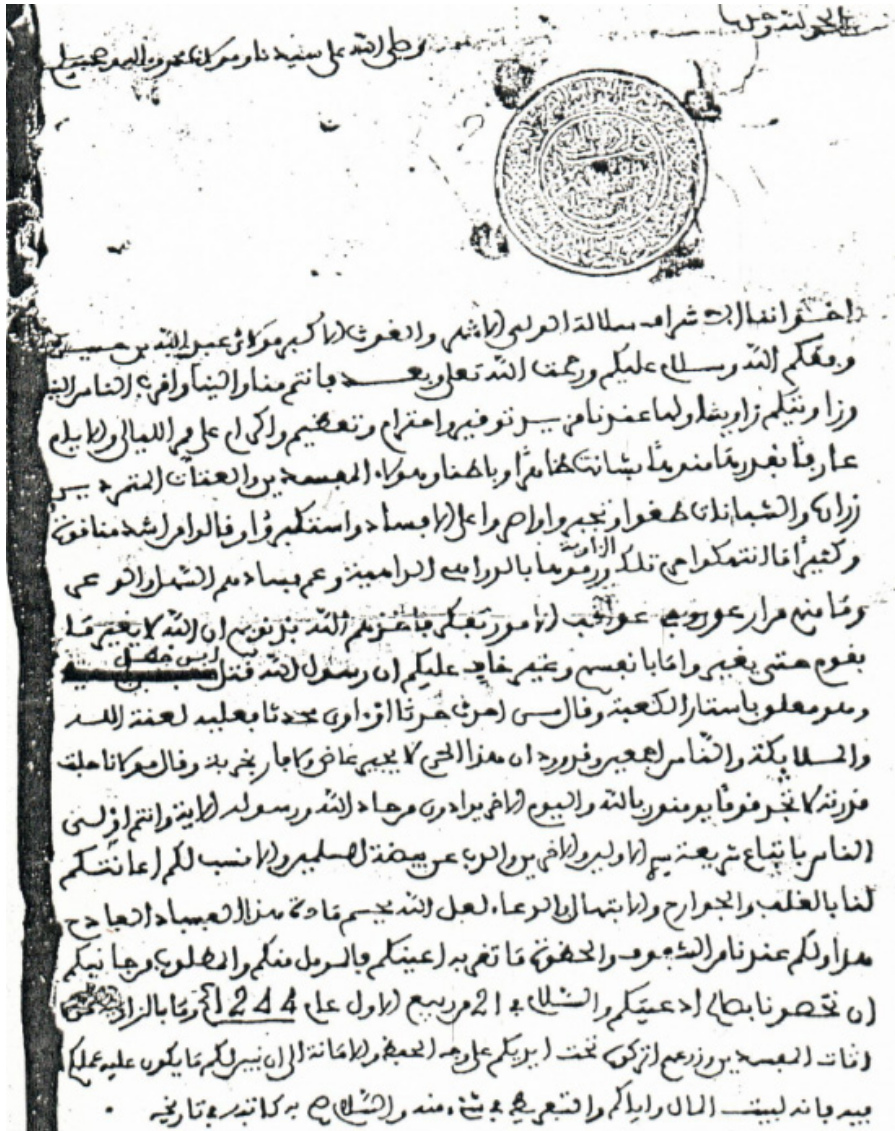 الحمد لله وحده
وصلى الله على سيدنا ومولانا محمد وآله وصحبه وسلم
اخواننا الشرفاء سلالة الولي الاشهر والغوث الاكبر مولاي عبد الله بن حسين
وفقكم الله وسلام عليكم ورحمت الله تعلى وبعد فانتم منا والينا واقرب الناس
وزاويتكم زاويتنا ولها عندنا مزيد توقير واحترام وتعظيم واكرام على مر الليالي والايام
المفسدين والعتات المتمردين
زرارة والشبانات طغوا وتجبروا واصروا على الافساد واستكبروا وقالوا من اشد منا قوة
وكثيرا ما انتهكوا حرم تلك الزاوية
وعم فسادهم السهل والوعر
ان الله لا يغير ما
بقوم حتى يغيروا ما بانفسهم وغير خاف عليكم ان رسول الله قتل ابن خطل
وهو معلق باستار الكعبة وقال من احدث حدثا او اوى محدثا فعليه لعنة الله
والملايكة والناس اجمعين وورد ان هذا الحرم لا يجير عاصيا ولا فارا بخربة وقال مولانا جلت
قدرته لا تجد قوما يومنون بالله واليوم الاخر يوادون من حاد الله ورسوله الاية وانتم اولى
الناس باتباع شريعة سيد الاولين والاخرين والذب عن بيضة المسلمين والانسب لكم اعانتكم
لنا بالقلب والجوارح والابتهال والدعاء لعل الله يحسم مادة هذا الفساد الفادح
هذا ولكم عندنا من الشفوف والحظوة ما تقر به اعينكم فالمومل منكم والمطلوب من جانبكم
ان تخصونا بصالح ادعيتكم والسلام في 21 من ربيع الاول عام 1244 وما بالزاوية من
اثاث المفسدين وزرعهم اتركوه تحت ايديكم على وجه الحفظ والامانة الى ان نبين لكم ما يكون عليه عملكم
فيه فانه لبيت المال واياكم والتفريط في شيء منه والسلام صح به كاتبه في تاريخه